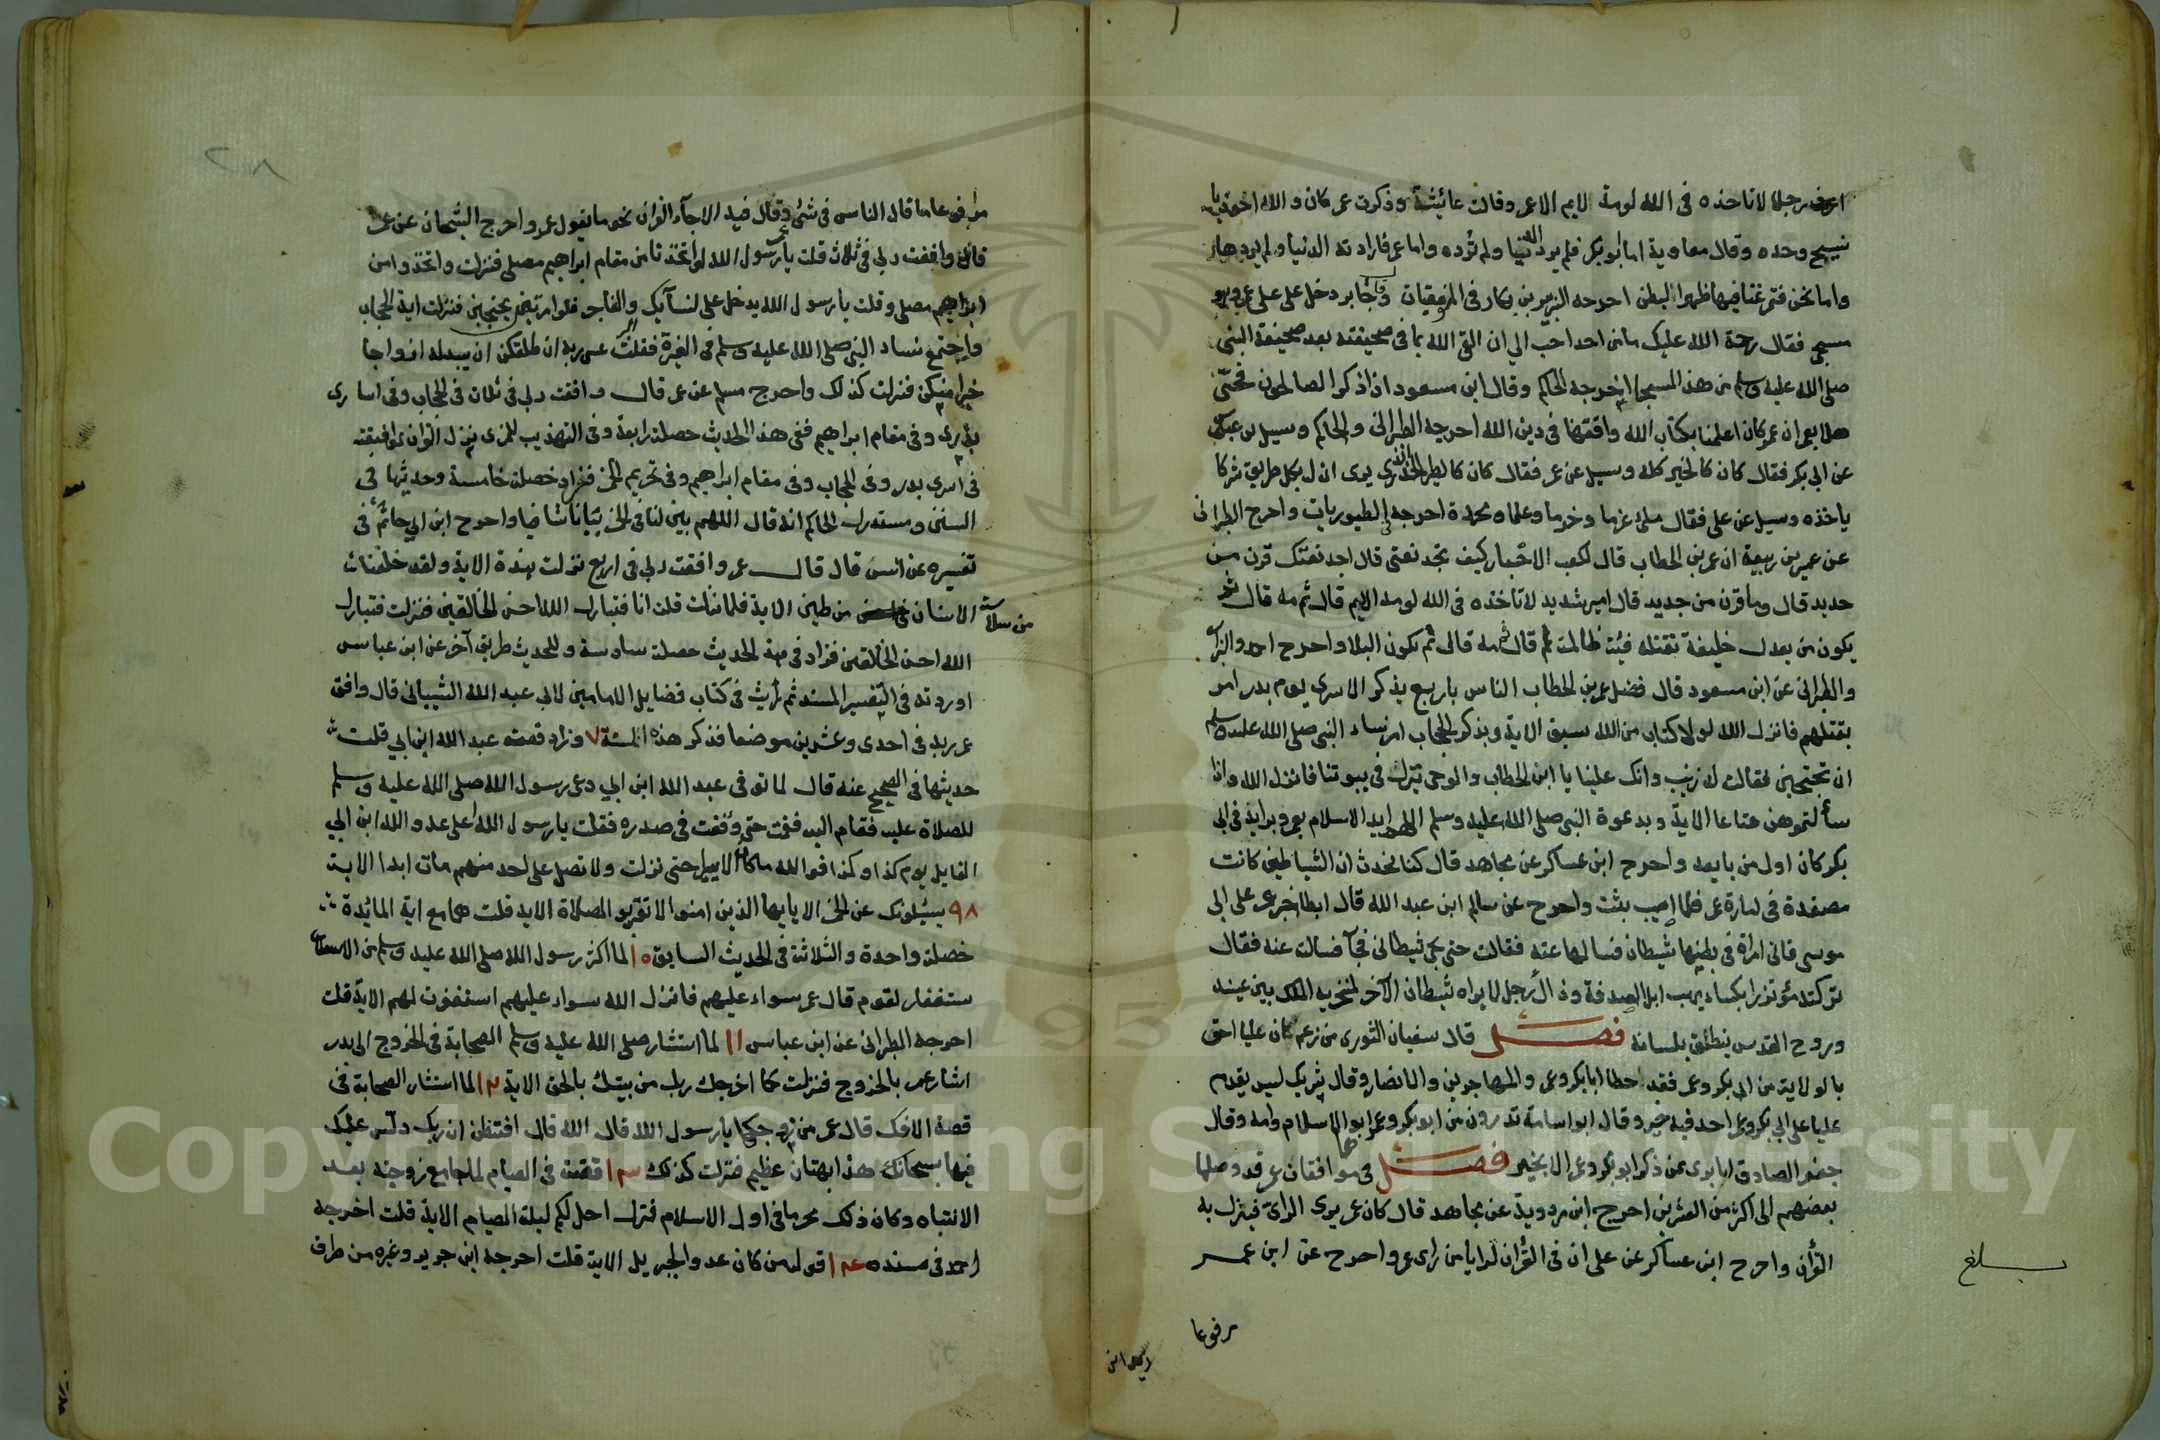 اعرف رجلا لا تاخذه فى الله لومة لايم الا عمر وقالت عائشة وذكرت عمر كان والله احوذيا
نسيج وحده وقال معاوية اما ابو بكر فلم يرد الدنيا ولم ترده واما عمر فارادته الدنيا ولم يردها
واما نحن فتمرغنا فيها ظهرا لبطن اخرجه الزبير بن بكار فى الموفقيات وقال جابر دخل على على عمر وهو
مسجى فقال رحمة الله عليك ما من احد احب الي ان القى الله بما فى صحيفته بعد صحيفة النبى
صلى الله عليه وسلم من هذا المسجا اخرجه الحاكم وقال ابن مسعود اذا ذكر الصالحون فحى
هلا بعمر ان عمر كان اعلمنا بكتاب الله وافقهنا فى دين الله اخرجه الطبرانى والحاكم وسيل بن عباس
عن ابى بكر فقال كان كالخير كله وسيل عن عمر فقال كان كالطير الحذر الذى يرى ان له بكل طريق شركا
ياخذه وسيل عن على فقال ملئ عزما وحزما وعلما ونجدة اخرجه فى الطيوريات واخرج الطبرانى
عن عمير بن ربيعة ان عمر بن الخطاب قال لكعب الاحبار كيف تجد نعتى قال اجد نعتك قرن من
حديد قال وما قرن من حديد قال امير شديد لا تاخذه فى الله لومة لايم قال ثم مه قال ثم
يكون من بعدك خليفة تقتله فئة ظالمة ثم قال ثم مه قال ثم يكون البلا واخرج احمد والبزار
والطبرانى عن ابن مسعود قال فضل عمر بن الخطاب الناس باربع بذكر الاسرى يوم بدر امر
بقتلهم فانزل الله لولا كتاب من الله سبق الاية وبذكر الحجاب امر نساء النبى صلى الله عليه وسلم
ان تحتجبن فقالت له زينب وانك علينا يا ابن الخطاب والوحى ينزل فى بيوتنا فانزل الله واذا
سألتموهن متاعا الاية وبدعوة النبى صلى الله عليه وسلم اللهم ايد الاسلام بعمر وبرايه فى ابى
بكر كان اول من بايعه واخرج ابن عساكر عن مجاهد قال كنا نحدث ان الشياطين كانت
مصفدة فى امارة عمر فلما اصيب بثت واخرج عن سالم ابن عبد الله قال ابطا خبر عمر على ابى
موسى فاتى امراة فى بطنها شيطان فسالها عنه فقالت حتى يجى شيطانى فجآ فسالته عنه فقال
تركته مؤتزرا بكساء يهنا ابل الصدقة وذاك رجل لا يراه شيطان الا خر لمنخريه الملك بين عينيه
وروح القدس ينطق بلسانه فصل قال سفيان الثورى من زعم ان عليا احق
بالولاية من ابى بكر وعمر فقد اخطا ابا بكر وعمر والمهاجرين والانصار وقال شريك ليس يقدم
عليا على ابى بكر وعمر احد فيه خير وقال ابو اسامة تدرون من ابو بكر وعمر ابو الاسلام وامه وقال
جعفر الصادق انا برى ممن ذكر ابو بكر وعمر الا بخير فصل فى موافقات عمر قد وصلها
بعضهم الى اكثر من العشرين اخرج ابن مردوية عن مجاهد قال كان عمر يرى الراى فينزل به
القرأن واخرج ابن عساكر عن على ان فى القرأن لرايا من راى عمر واخرج عن ابن عمر
بلغ
مرفوعا
٢٨
مرفوعا ما قال الناس فى شئ وقال فيه عمر الا جآء القران نحو ما يقول عمر واخرج الشيخان عن عمر
قال وافقت ربى فى ثلاث قلت يا رسول الله لو اتخذنا من مقام ابراهيم مصلى فنزلت واتخذوا من
مقام ابراهيم مصلى وقلت يا رسول الله يدخل على نسآئك البر والفاجر فلو امرتهن يحتجبن فنزلت اية الحجاب
واجتمع نساء النبى صلى الله عليه وسلم فى الغيرة فقلت عسى ربه ان طلقكن ان يبدله ازواجا
خيرا منكن فنزلت كذلك واخرج مسلم عن عمر قال وافقت ربى فى ثلاث فى الحجاب وفى اسارى
بدر وفى مقام ابراهيم ففى هذا الحديث خصلة رابعة وفى التهذيب للنووى نزل القران بموافقته
فى اسرى بدر وفى الحجاب وفى مقام ابراهيم وفى تحريم الخمر فزاد خصلة خامسة وحديثها فى
السنن ومستدرك الحاكم انه قال اللهم بين لنا فى الخمر بيانا شافيا واخرج ابن ابى حاتم فى
تفسيره عن انس قال قال عمر وافقت ربى فى اربع نزلت هذه الاية ولقد خلقنا
الانسان من سلالة من طين الاية فلما نزلت قلت انا فتبارك الله احسن الخالقين فنزلت فتبارك
الله احسن الخالقين فزاد فى هذا الحديث خصلة سادسة وللحديث طريق آخر عن ابن عباس
اوردته فى التفسير المسند ثم رأيت فى كتاب فضايل الامامين لابى عبد الله الشيبانى قال وافق
عمر ربه فى احدى وعشرين موضعا فذكر هذه الستة ٧ وزاد قصة عبد الله ابن ابي قلت
حديثها فى الصحيح عنه قال لما توفى عبد الله ابن ابي دعى رسول الله صلى الله عليه وسلم
للصلاة عليه فقام اليه فقمت حتى وقفت فى صدره فقلت يا رسول الله اعلى عدو الله ابن ابي
القايل يوم كذا وكذا فوالله ما كان الا يسيرا حتى نزلت ولا تصل على احد منهم مات ابدا الاية
٨ ٩ يسئلونك عن الخمر الاية يايها الذين امنوا لا تقربو الصلاة الاية قلت هما مع اية المائدة
خصلة واحدة والثلاثة فى الحديث السابق ١٠ لما اكثر رسول الله صلى الله عليه وسلم من الا
ستغفار لقوم قال عمر سواء عليهم فانزل الله سواء عليهم استغفرت لهم الاية قلت
اخرجه الطبرانى عن ابن عباس ١١ لما استشار صلى الله عليه وسلم الصحابة فى الخروج الى بدر
اشار عمر بالخروج فنزلت كما اخرجك ربك من بيتك بالحق الاية ١٢ لما استشار الصحابة فى
قصة الافك قال عمر من زوجكها يا رسول الله قال الله قال افتظن ان ربك دلس عليك
فيها سبحانك هذا بهتان عظيم فنزلت كذلك ١٣ قصته فى الصيام لما جامع زوجته بعد
الانتباه وكان ذلك محرما فى اول الاسلام فنزل احل لكم ليلة الصيام الاية قلت اخرجه
احمد فى مسنده ١٤ قوله من كان عدوا لجبريل الاية قلت اخرجه ابن جرير وغيره من طرق
Copyright © King Saud University
1957